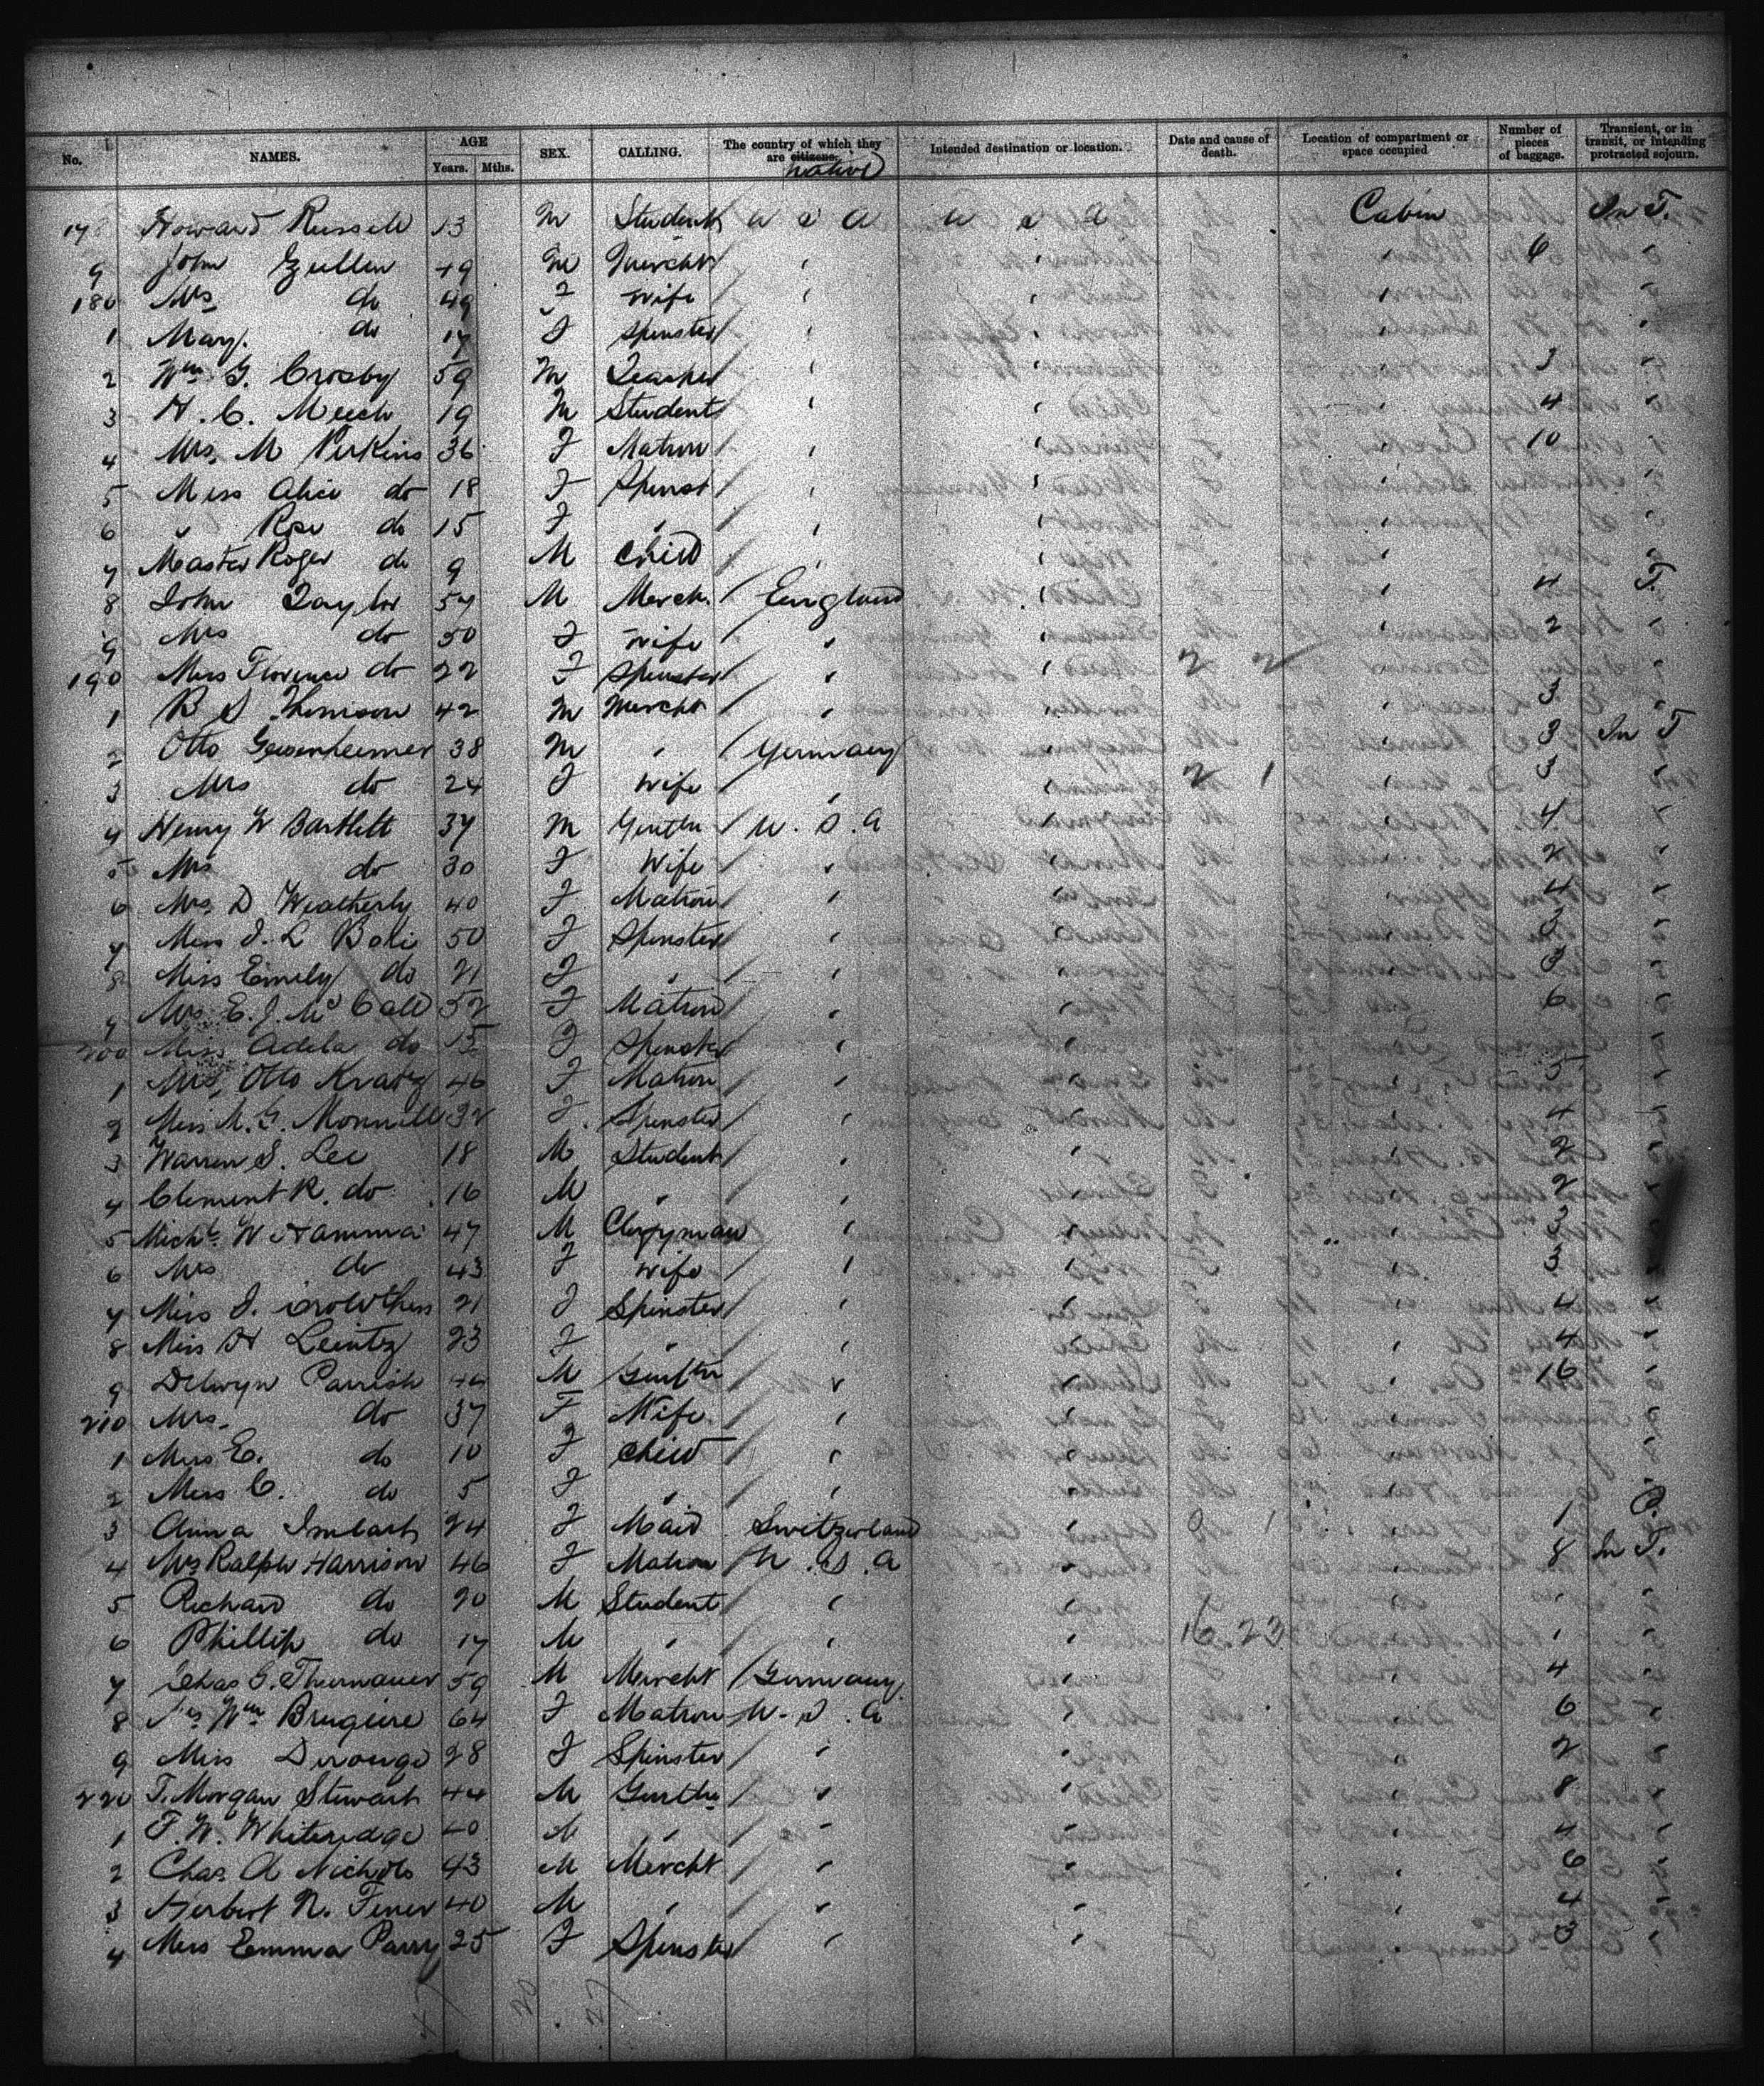 No. NAMES. AGE Years. Mths. SEX. CALLING. The country of which they are citizens. native Intended destination or location. Date and cause of death. Location of compartment or space occupied Number of pieces of baggage. Transient, or in transit, or intending protracted sojourn.
178 Howard Russell 13 M Student U S A U S A Cabin In T.
9 John Zullen 49 M Mercht " " " 6 "
180 Mrs do 49 F Wife " " " "
1 Mary. do 17 F Spinster " " " "
2 Wm G. Crosby 59 M Teacher " " " 3 "
3 H. C. Meech 19 M Student " " " 4 "
4 Mrs. M Perkins 36 F Matron " " " 10 "
5 Miss Alice do 18 F Spinst " " " "
6 " Rose do 15 F " " " " "
7 Master Roger do 9 M Child " " " "
8 John Taylor 57 M Merch. England " " 4 T.
9 Mrs do 50 F Wife " " " 2 "
190 Miss Florence do 22 F Spinster " " 2 2 " "
1 B S Thomson 42 M Mercht " " " 3 "
2 Otto Geisenheimer 38 M " Germany " " 3 In T
3 Mrs do 24 F Wife " " 2 1 " 3 "
4 Henry W Bartlett 37 M Gentln U. S. A " " 4 "
5 Mrs do 30 F Wife " " " 2 "
6 Mrs. D Weatherly 40 F Matron " " " 4 "
7 Miss J. L Boli 50 F Spinster " " " 3 "
8 Miss Emily do 21 F " " " " 3 "
9 Mrs E. J. Mc Call 52 F Matron " " " 6 "
200 Miss Adela do 15 F Spinster " " " "
1 Mrs. Otto Kratz 46 F Matron " " " 5 "
2 Miss M. G. 32 F Spinster " " " 4 "
3 Warren S. Lee 18 M Student " " " 2 "
4 Clement R. do 16 M " " " " 2 "
5 Michl. W Hamma 47 M Clergyman " " " 3 "
6 Mrs do 43 F Wife " " " 3 "
7 Miss J. Crowthers 21 F Spinster " " " 4 "
8 Miss H Leintz 23 F " " " " 4 "
9 Delwyn Parrish 44 M Gentln " " " 16 "
210 Mrs. do 37 F Wife " " " "
1 Miss E. do 10 F Child " " " "
2 Miss C. do 5 F " " " " "
3 Anna Imbach 24 F Maid Switzerland " 0 1 " 1
4 Mrs Ralph Harrison 46 F Matron U. S. A " " 8 In T.
5 Richard do 20 M Student " " " " "
6 Phillip do 17 M " " " 16.23 " " "
7 Chas G. Thurnauer 59 M Mercht Germany " " 4 "
8 Mrs Wm Brugiere 64 F Matron U. S. A " " 6 "
9 Miss Derouge 28 F Spinster " " " 2 "
220 T. Morgan Stewart 44 M Gentln " " " 8 "
1 F. W. Whiteridge 40 M " " " " 4 "
2 Chas. A Nichols 43 M Mercht " " " 6 "
3 Herbert N. Fenner 40 M " " " " 4 "
4 Miss Emma Parry 25 F Spinster " " " 3 "
47 20 27